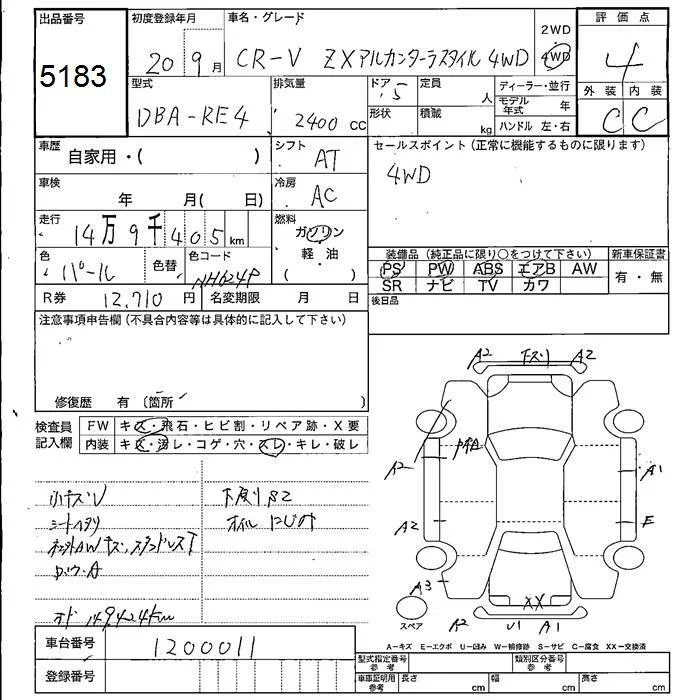 出品番号 初度登録年月 車名・グレード 2WD 評価点
5183 20 9月 CR-V ZXアルカンターラスタイル 4WD 4WD 4
型式 排気量 ドア 定員 ディーラー・並行 外装 内装
DBA-RE4 2400 cc 5 人 モデル年式 年 C C
形状 積載 kg ハンドル 左・右
車歴 自家用・( ) シフト AT セールスポイント(正常に機能するものに限ります)
車検 年 月( 日) 冷房 AC 4WD
走行 14万9千405km 燃料 ガソリン・軽油( )
色 パール 色替 色コード NH624P
装備品(純正品に限り○をつけて下さい) 新車保証書
PS PW ABS エアB AW 有・無
SR ナビ TV カワ
R券 12,710円 名変期限 月 日 後日品
注意事項申告欄(不具合内容等は具体的に記入して下さい)
修復歴 有(箇所 )
検査員記入欄 FW キズ・飛石・ヒビ割・リペア跡・X要
内装 キズ・汚レ・コゲ・穴・スレ・キレ・破レ
A2 下スリ A2
A2 A1
A2 E
A3
XX
スペア A2 U1 A1
小キズU 下廻りS2
シートヘタリ オイルにじみ
オド 149424km
A-キズ E-エクボ U-凹み W-補修跡 S-サビ C-腐食 XX-交換済
車台番号 1200011 型式指定番号 参考 類別区分番号 参考
登録番号 車庫証明用 参考 長さ cm 幅 cm 高さ cm